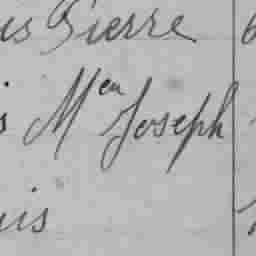 is Pierre
s Men Joseph
uis